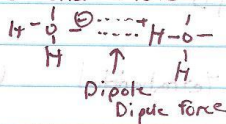 H-O-⊖ ------+ H-O-
H H
Dipole
Dipole Force